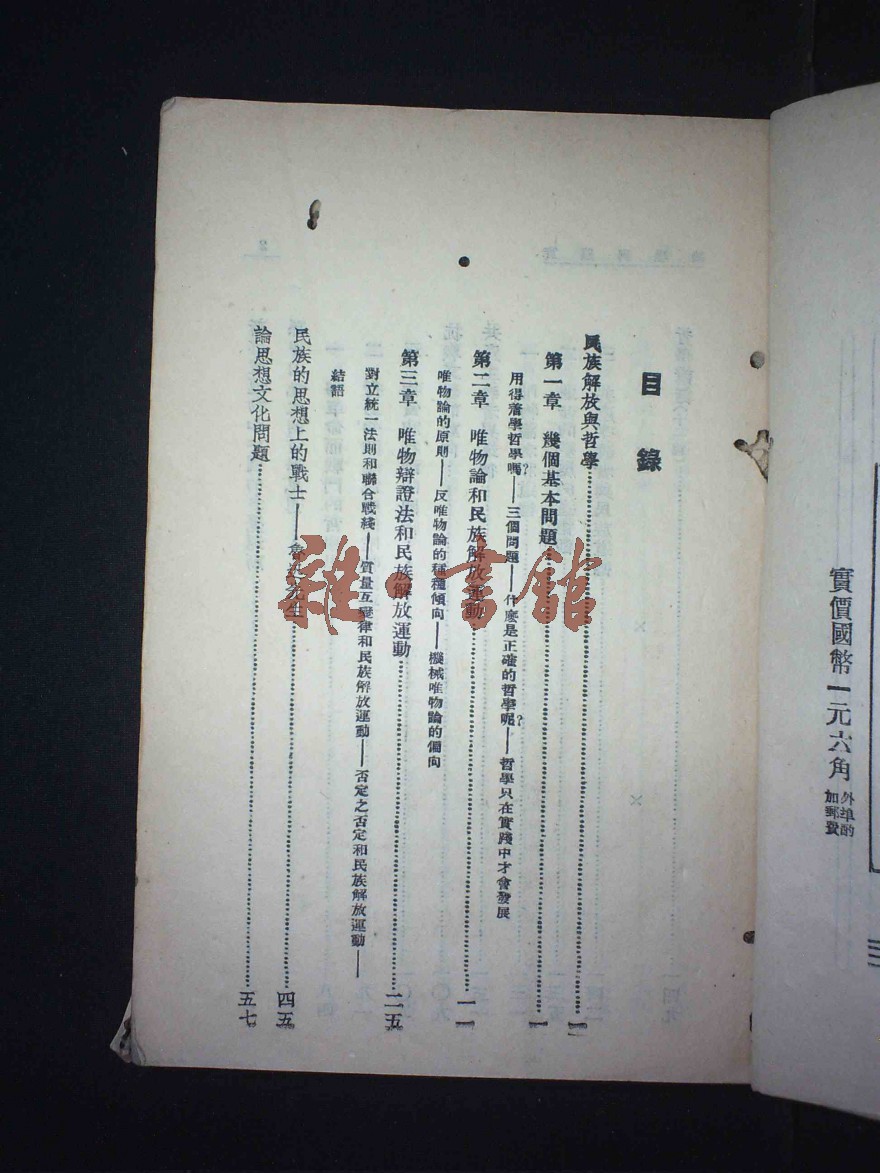 實價國幣一元六角 外埠酌加郵費
目錄
民族解放與哲學……一
第一章 幾個基本問題……一
用得着學哲學嗎?——三個問題——什麼是正確的哲學呢?——哲學只在實踐中才會發展
第二章 唯物論和民族解放運動……一一
唯物論的原則——反唯物論的種種傾向——機械唯物論的偏向
第三章 唯物辯證法和民族解放運動……二五
對立統一法則和聯合戰綫——質量互變律和民族解放運動——否定之否定和民族解放運動——
結語
民族的思想上的戰士——魯迅先生……四五
論思想文化問題……五七
雜·書館